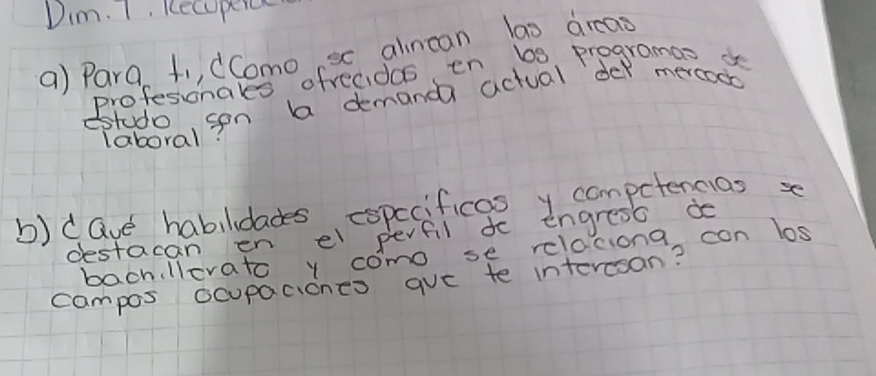 Dim. 1. Recupera
a) Para ti, ¿Como se alinean las áreas
profesionales ofrecidas en los programas de
estudo son la demanda actual del mercado
laboral?
b) ¿Qué habilidades especificas y competencias se
destacan en el perfil de engreso de
bachillerato y como se relaciona con los
campos ocupaciones que te interesan?